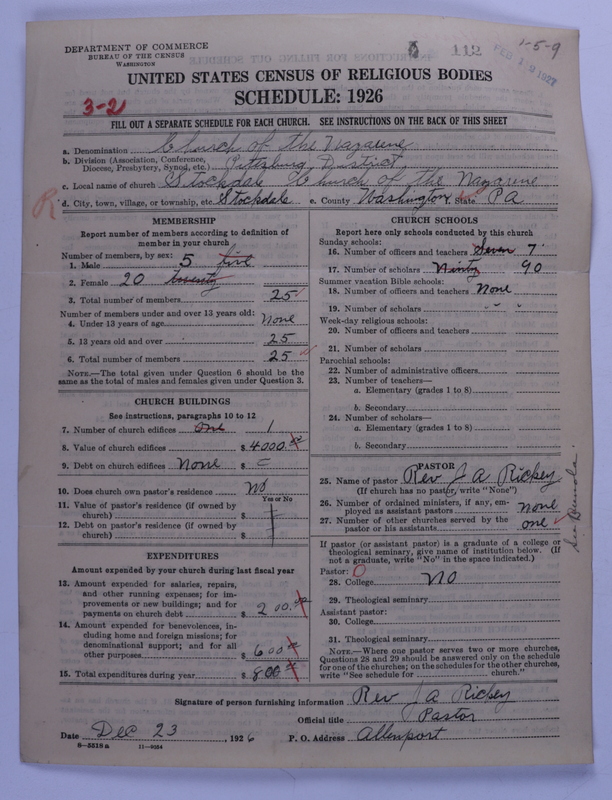 DEPARTMENT OF COMMERCE
BUREAU OF THE CENSUS
WASHINGTON
112
1-5-9
FEB 19 1927
UNITED STATES CENSUS OF RELIGIOUS BODIES
SCHEDULE: 1926
3-2
FILL OUT A SEPARATE SCHEDULE FOR EACH CHURCH. SEE INSTRUCTIONS ON THE BACK OF THIS SHEET
a. Denomination Church of the Nazarene
b. Division (Association, Conference, Diocese, Presbytery, Synod, etc.) Pittsburg District
c. Local name of church Stockdale Church of the Nazarene
R
d. City, town, village, or township, etc. Stockdale e. County Washington State PA
MEMBERSHIP
Report number of members according to definition of
member in your church
Number of members, by sex:
1. Male 5 five
2. Female 20 twenty
3. Total number of members 25
Number of members under and over 13 years old:
4. Under 13 years of age None
5. 13 years old and over 25
6. Total number of members 25
NOTE.—The total given under Question 6 should be
same as the total of males and females given under Question 3.
CHURCH BUILDINGS
See instructions, paragraphs 10 to 12
7. Number of church edifices one 1
8. Value of church edifices $ 4000.00
9. Debt on church edifices None $
10. Does church own pastor's residence No
Yes or No
11. Value of pastor's residence (if owned by
church) $
12. Debt on pastor's residence (if owned by
church) $
EXPENDITURES
Amount expended by your church during last fiscal year
13. Amount expended for salaries, repairs,
and other running expenses; for im-
provements or new buildings; and for
payments on church debt $ 200.00
14. Amount expended for benevolences, in-
cluding home and foreign missions; for
denominational support; and for all
other purposes $ 600.00
15. Total expenditures during year $ 800
CHURCH SCHOOLS
Report here only schools conducted by this church
Sunday schools:
16. Number of officers and teachers Seven 7
17. Number of scholars Ninty 90
Summer vacation Bible schools:
18. Number of officers and teachers None
19. Number of scholars " "
Week-day religious schools:
20. Number of officers and teachers
21. Number of scholars
Parochial schools:
22. Number of administrative officers
23. Number of teachers—
a. Elementary (grades 1 to 8)
b. Secondary
24. Number of scholars—
a. Elementary (grades 1 to 8)
b. Secondary
PASTOR
25. Name of pastor Rev J A Rickey
(If church has no pastor, write "None")
26. Number of ordained ministers, if any, em-
ployed as assistant pastors None
27. Number of other churches served by the
pastor or his assistants one
If pastor (or assistant pastor) is a graduate of a college or
theological seminary, give name of institution below. (If
not a graduate, write "No" in the space indicated.)
Pastor: 0
28. College No
29. Theological seminary
Assistant pastor:
30. College
31. Theological seminary
NOTE.—Where one pastor serves two or more churches,
Questions 28 and 29 should be answered only on the schedule
for one of the churches; on the schedules for the other churches,
write "See schedule for church."
Signature of person furnishing information Rev J A Rickey
Official title Pastor
Date Dec 23, 1926 P. O. Address Allenport
8-5518a 11-9034